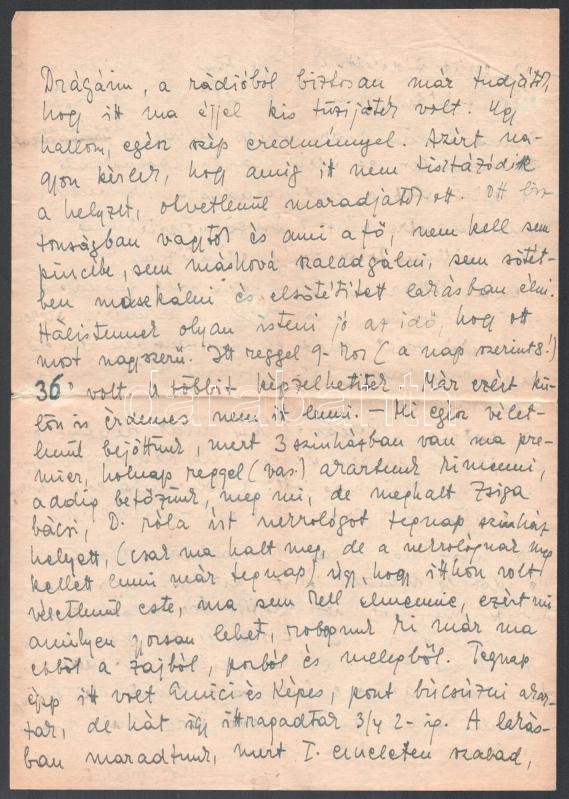 Drágáim, a rádióból biztosan már tudjátok,
hogy itt ma éjjel kis tüzijáték volt. Ugy
hallom, egész szép eredménnyel. Azért na-
gyon kérlek, hogy amig itt nem tisztázódik
a helyzet, okvetlenül maradjatok ott. Ott biz-
tonságban vagytok és ami a fő, nem kell sem
pincébe, sem máshová szaladgálni, sem sötét-
ben mászkálni és elsötétitett lakásban élni.
Hálistennek olyan isteni jó az idő, hogy ott
most nagyszerű. Itt reggel 9-kor (a nap szerint 8!)
36° volt. A többit képzelhetitek. Már ezért kü-
lön is érdemes nem itt lenni. – Mi egész vélet-
lenül bejöttünk, mert 3 szinházban van ma pre-
mier, holnap reggel (vas.) akartunk kimenni,
addig betőzünk, meg mi, de meghalt Zsiga
bácsi, D. róla irt nekrológot tegnap szinház
helyett, (csak ma halt meg, de a nekrológnak meg
kellett lenni már tegnap) ugy, hogy itthon volt
véletlenül este, ma sem kell elmennie, ezért mi
amilyen gyorsan lehet, robogunk ki már ma
ebből a zajból, porból és melegből. Tegnap
épp itt volt Emici és Képes, pont búcsúzni akar-
tak, de hát igy ittragadtak 3/4 2-ig. A lakás-
ban maradtunk, mert I. emeleten szabad,
darabanth